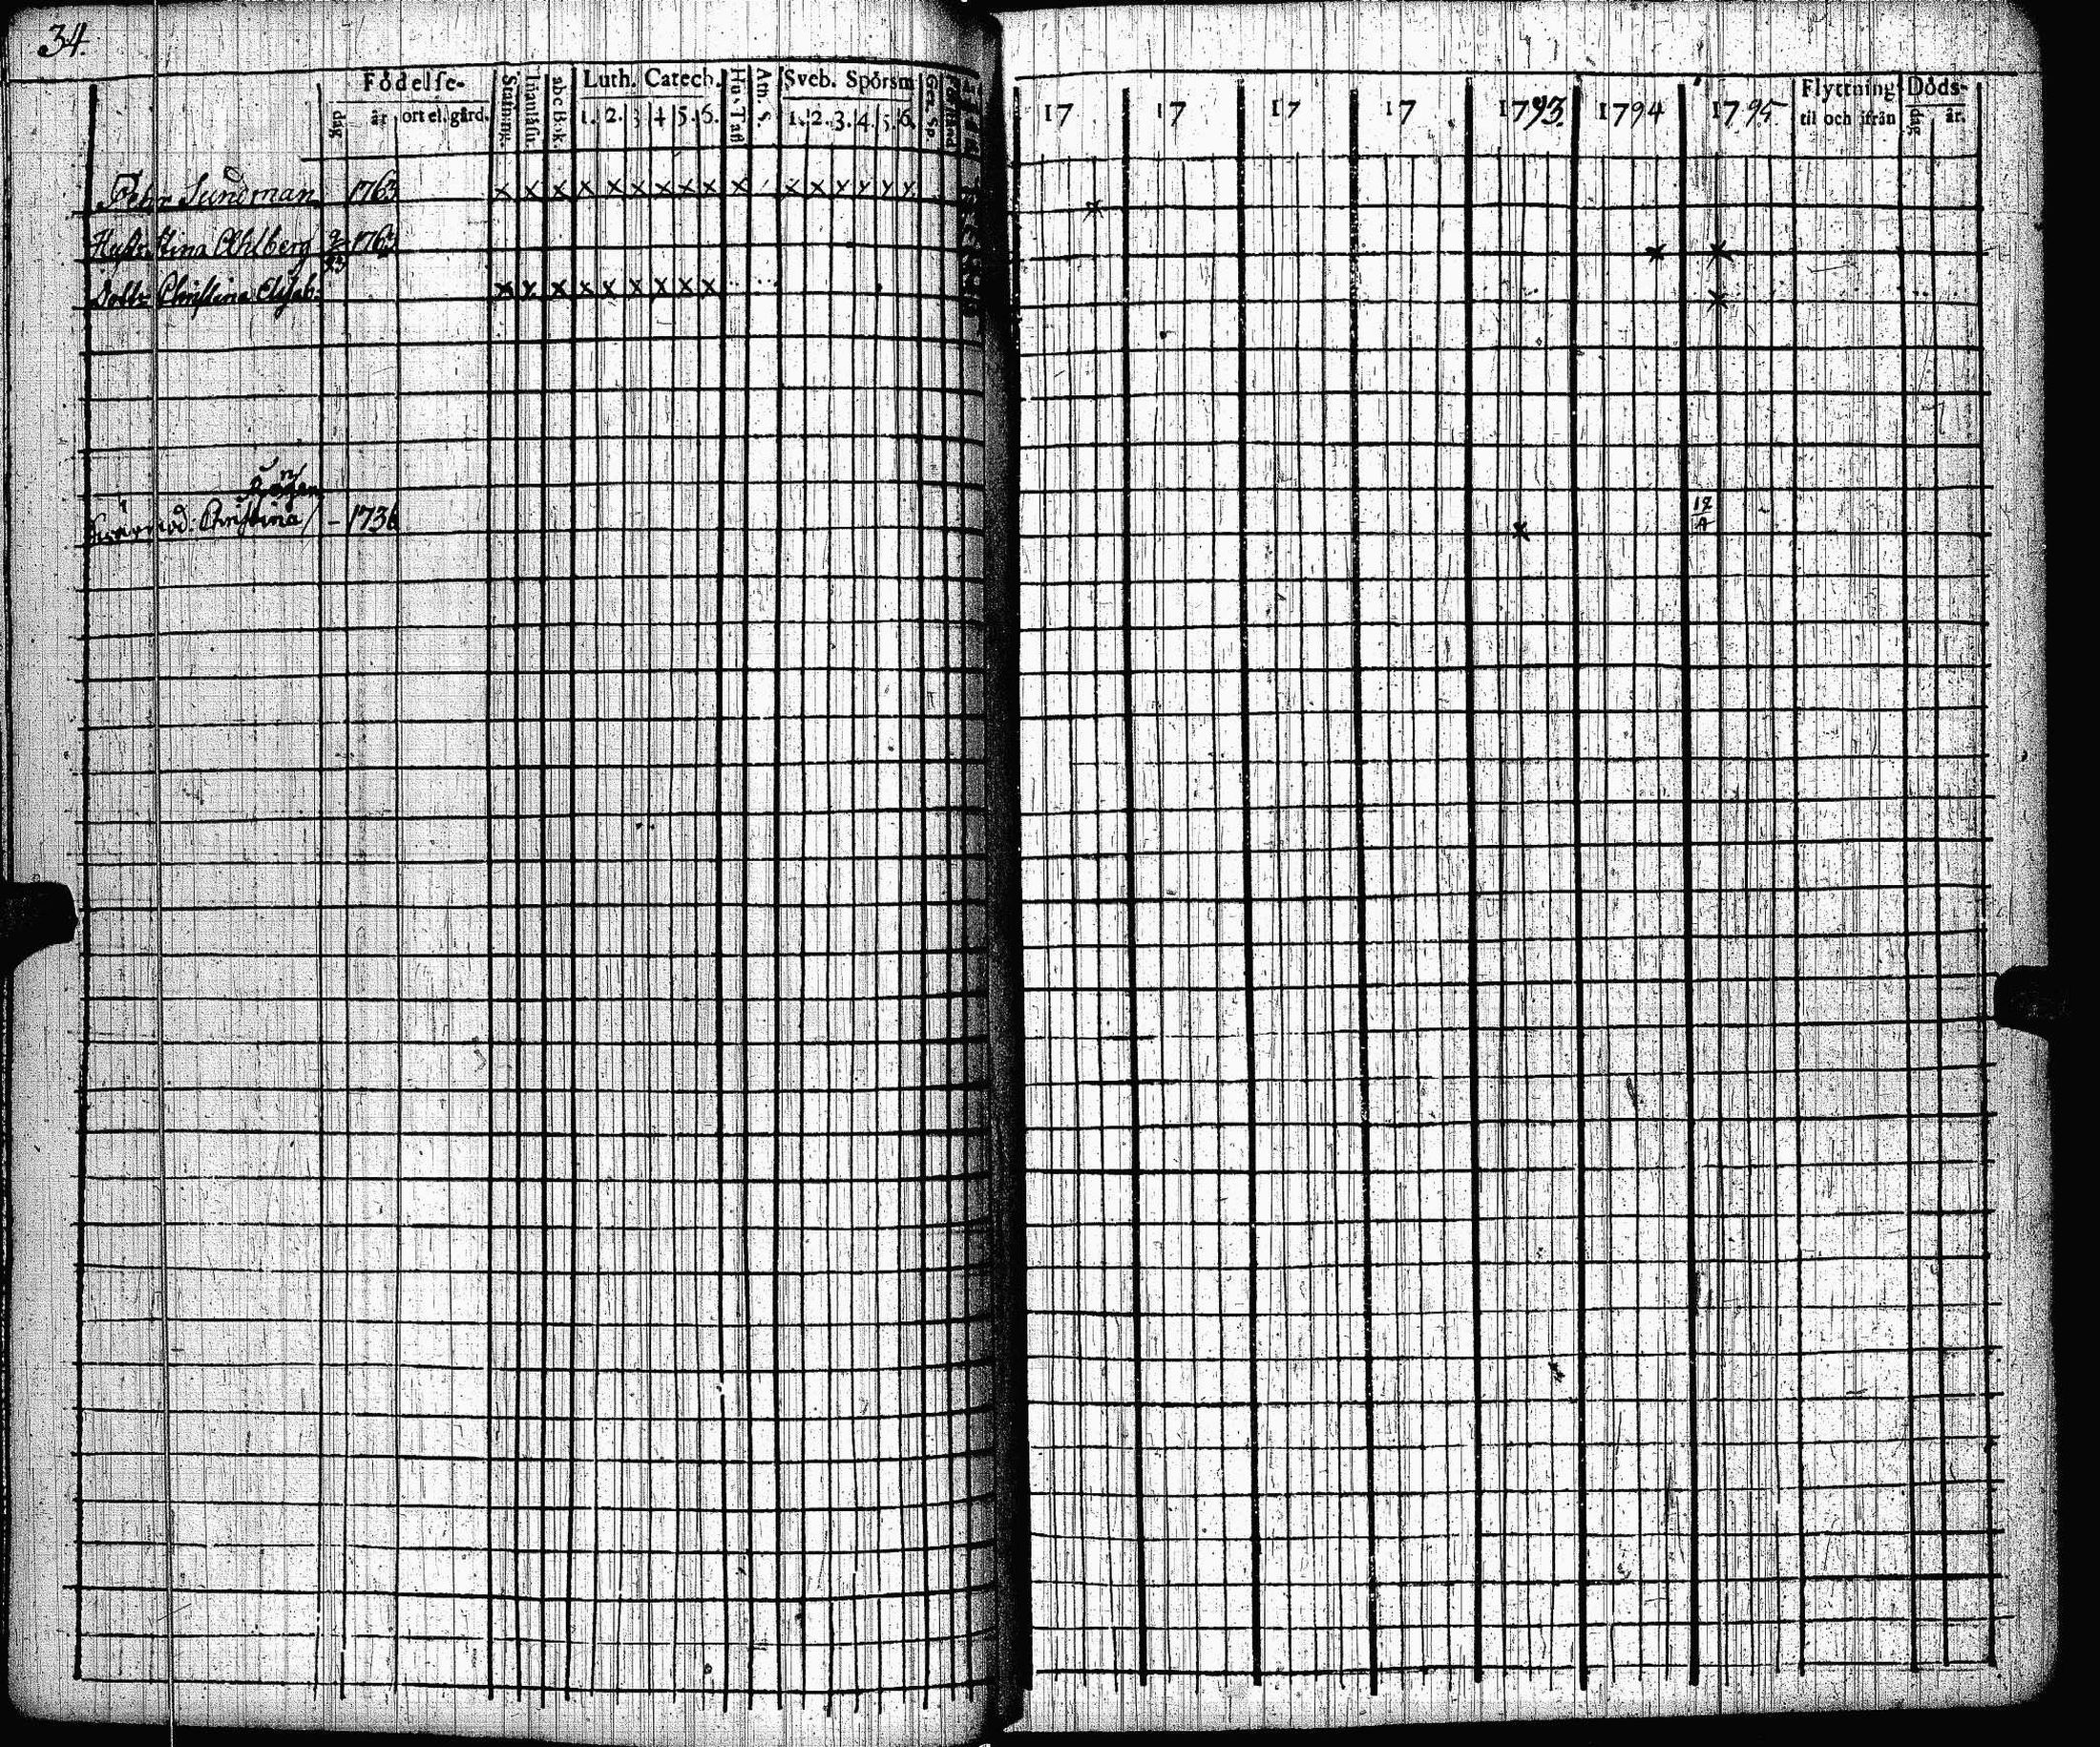 34.
Födelse- Luth. Catech. Sveb. Spörsm Flyttning Döds-
dag år ort el. gård. Stafning. abc Bok. 1. 2. 3 4 5. 6. Hus Tafl Atn. S. 1. 2. 3. 4. 5. 6. Gez. Sp. 17 17 17 17 1793. 1794 1795 til och ifrån dag år.
Pehr Sundman 1763 x x x x x x x x x x x x x x x x
x
Hustr. Stina Ahlberg 9/23 1763 x x
Dottr Christina Elisab: x x x x x x x x x x
Christina - 1736 x